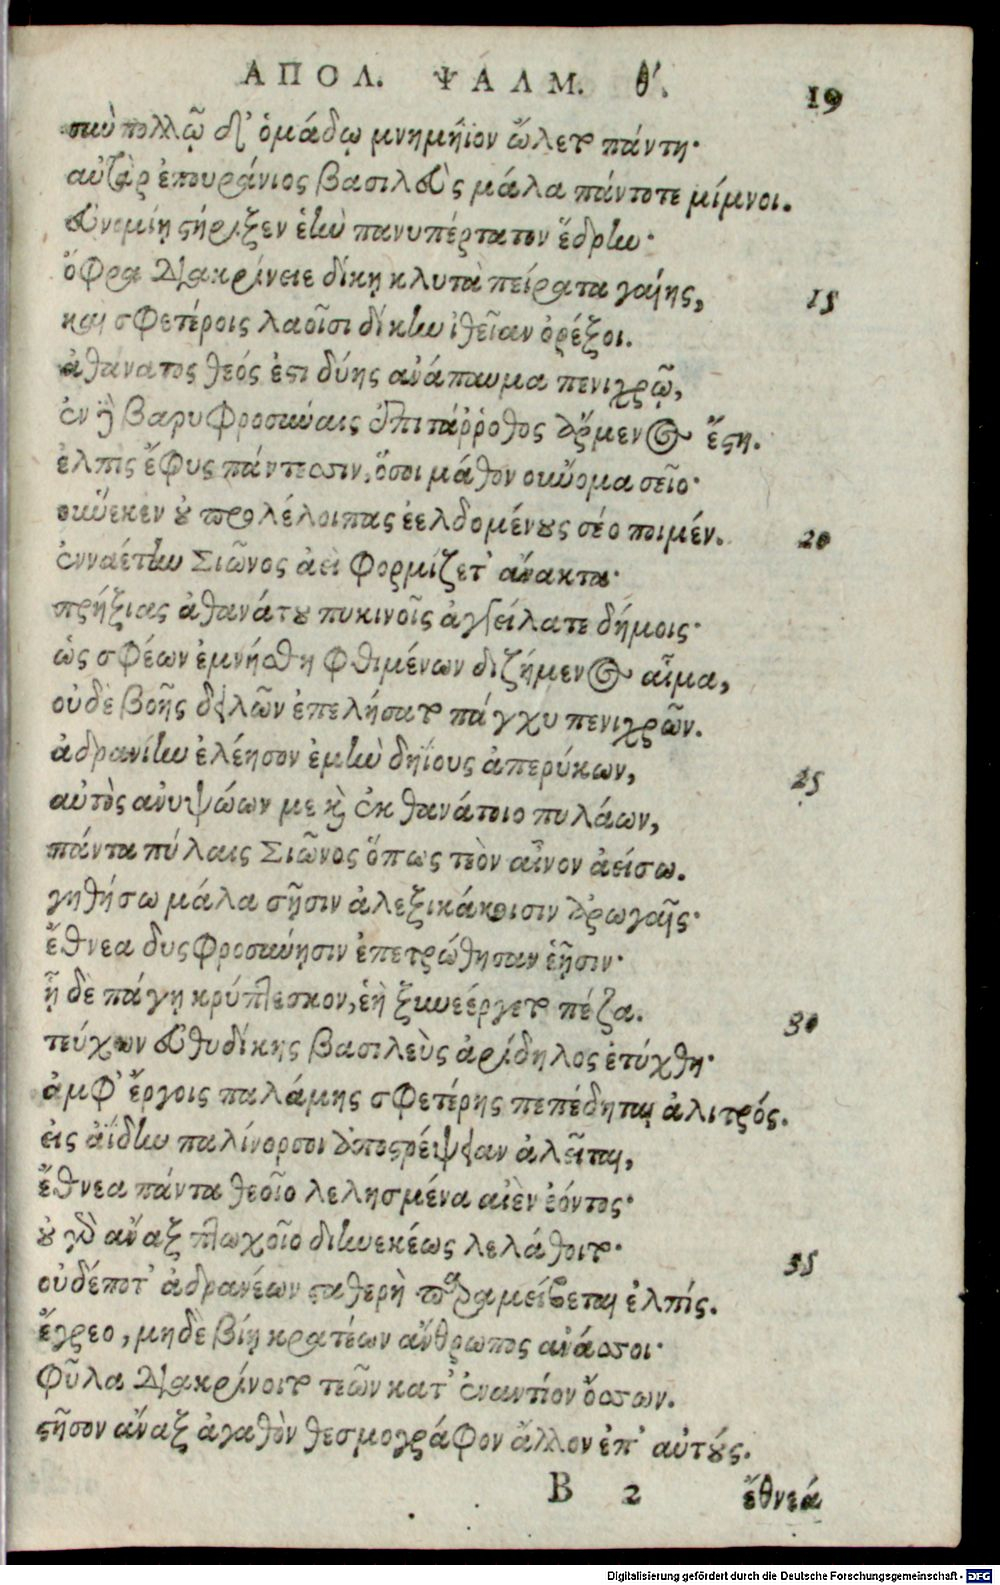 ΑΠΟΛ. ΨΑΛΜ. θ΄. 19
σὺν πολλῷ δ' ὁμάδῳ μνημήϊον ὤλετο πάντη·
αὐτὰρ ἐπουράνιος βασιλεὺς μάλα πάντοτε μίμνοι.
εὐνομίῃ στήριξεν ἑὴν πανυπέρτατον ἕδρην·
ὄφρα διακρίνειε δίκῃ κλυτὰ πείρατα γαίης, 15
καὶ σφετέροις λαοῖσι δίκην ἰθεῖαν ὀρέξοι.
ἀθάνατος θεός ἐστι δύης ἀνάπαυμα πενιχρῷ,
ἐν καὶ βαρυφροσύναις ἐπιτάρροθος ἄρμενος ἔστη.
ἐλπὶς ἔφυς πάντεσσιν, ὅσοι μάθον οὔνομα σεῖο·
οὕνεκεν οὐ προλέλοιπας ἐελδομένους σέο ποιμέν. 20
ἐνναέτην Σιῶνος ἀεὶ φορμίζετ' ἄνακτα·
πρήξιας ἀθανάτου πυκινοῖς ἀγγείλατε δήμοις·
ὡς σφέων ἐμνήσθη φθιμένων διζήμενος αἷμα,
οὐδὲ βοῆς δειλῶν ἐπελήσατο πάγχυ πενιχρῶν.
ἀδρανίην ἐλέησον ἐμὴν δηΐους ἀπερύκων, 25
αὐτὸς ἀνυψώων με καὶ ἐκ θανάτοιο πυλάων,
πάντα πύλαις Σιῶνος ὅπως τεὸν αἶνον ἀείσω.
γηθήσω μάλα σῇσιν ἀλεξικάκοισιν ἀρωγαῖς·
ἔθνεα δυσφροσύνῃσιν ἐπετρώθησαν ἑῇσιν·
ᾗ δὲ πάγῃ κρύπτεσκον, ἑὴ ξυνεέργετο πέζα. 30
τεύχων εὐθυδίκης βασιλεὺς ἀρίδηλος ἐτύχθη·
ἀμφ' ἔργοις παλάμης σφετέρης πεπέδηται ἀλιτρός.
εἰς ἀΐδην παλίνορσοι ἀποστρέψειαν ἀλεῖται,
ἔθνεα πάντα θεοῖο λελησμένα αἰὲν ἐόντος·
οὐ γὰρ ἄναξ πτωχοῖο διηνεκέως λελάθοιτο· 35
οὐδέποτ' ἀδρανέων σταθερὴ παραμείβεται ἐλπίς.
ἔγρεο, μηδὲ βίῃ κρατέων ἄνθρωπος ἀνάσσοι·
φῦλα διακρίνοιτο τεῶν κατ' ἐναντίον ὄσσων.
στῆσον ἄναξ ἀγαθὸν θεσμογράφον ἄλλον ἐπ' αὐτούς.
B 2 ἔθνεά
Digitalisierung gefördert durch die Deutsche Forschungsgemeinschaft - DFG